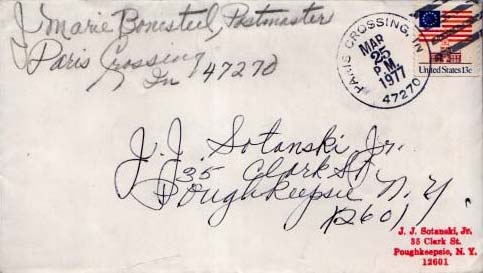 J Marie Bonesteel, Postmaster
Paris Crossing
In 47270
PARIS CROSSING, IN
MAR
25
P.M.
1977
47270
United States 13c
J.J. Sotanski, Jr.
35 Clark St.
Poughkeepsie N.Y.
12601
J. J. Sotanski, Jr.
35 Clark St.
Poughkeepsie, N. Y.
12601